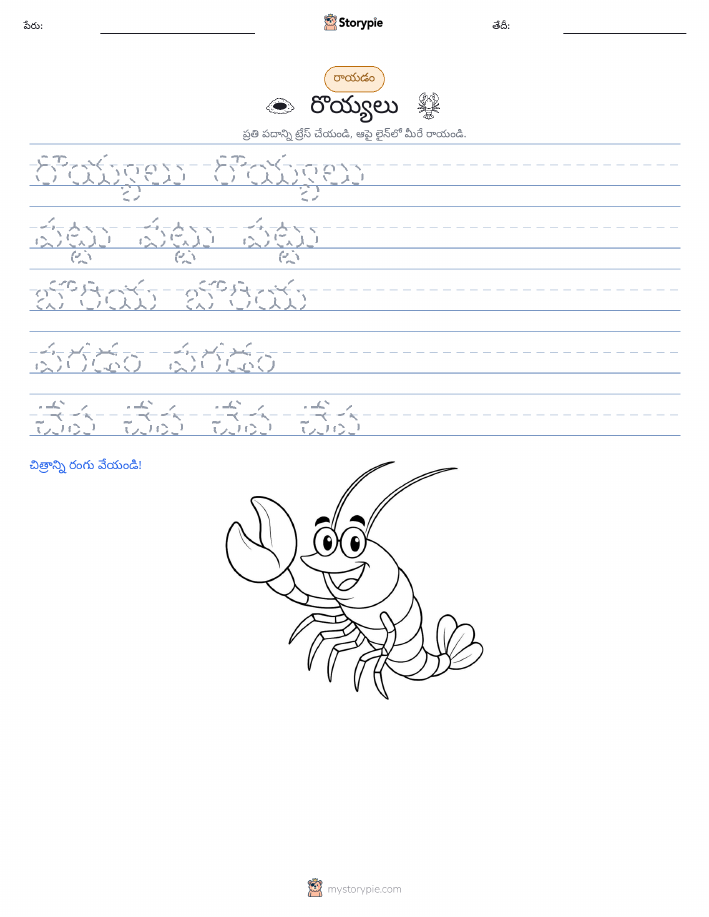 పేరు: Storypie తేదీ:
రాయడం
రొయ్యలు
ప్రతి పదాన్ని ట్రేస్ చేయండి, ఆపై లైన్‌లో మీరే రాయండి.
రొయ్యలు రొయ్యలు
పట్టు పట్టు పట్టు
బొరియ బొరియ
పగడం పగడం
చేప చేప చేప చేప
చిత్రాన్ని రంగు వేయండి!
mystorypie.com